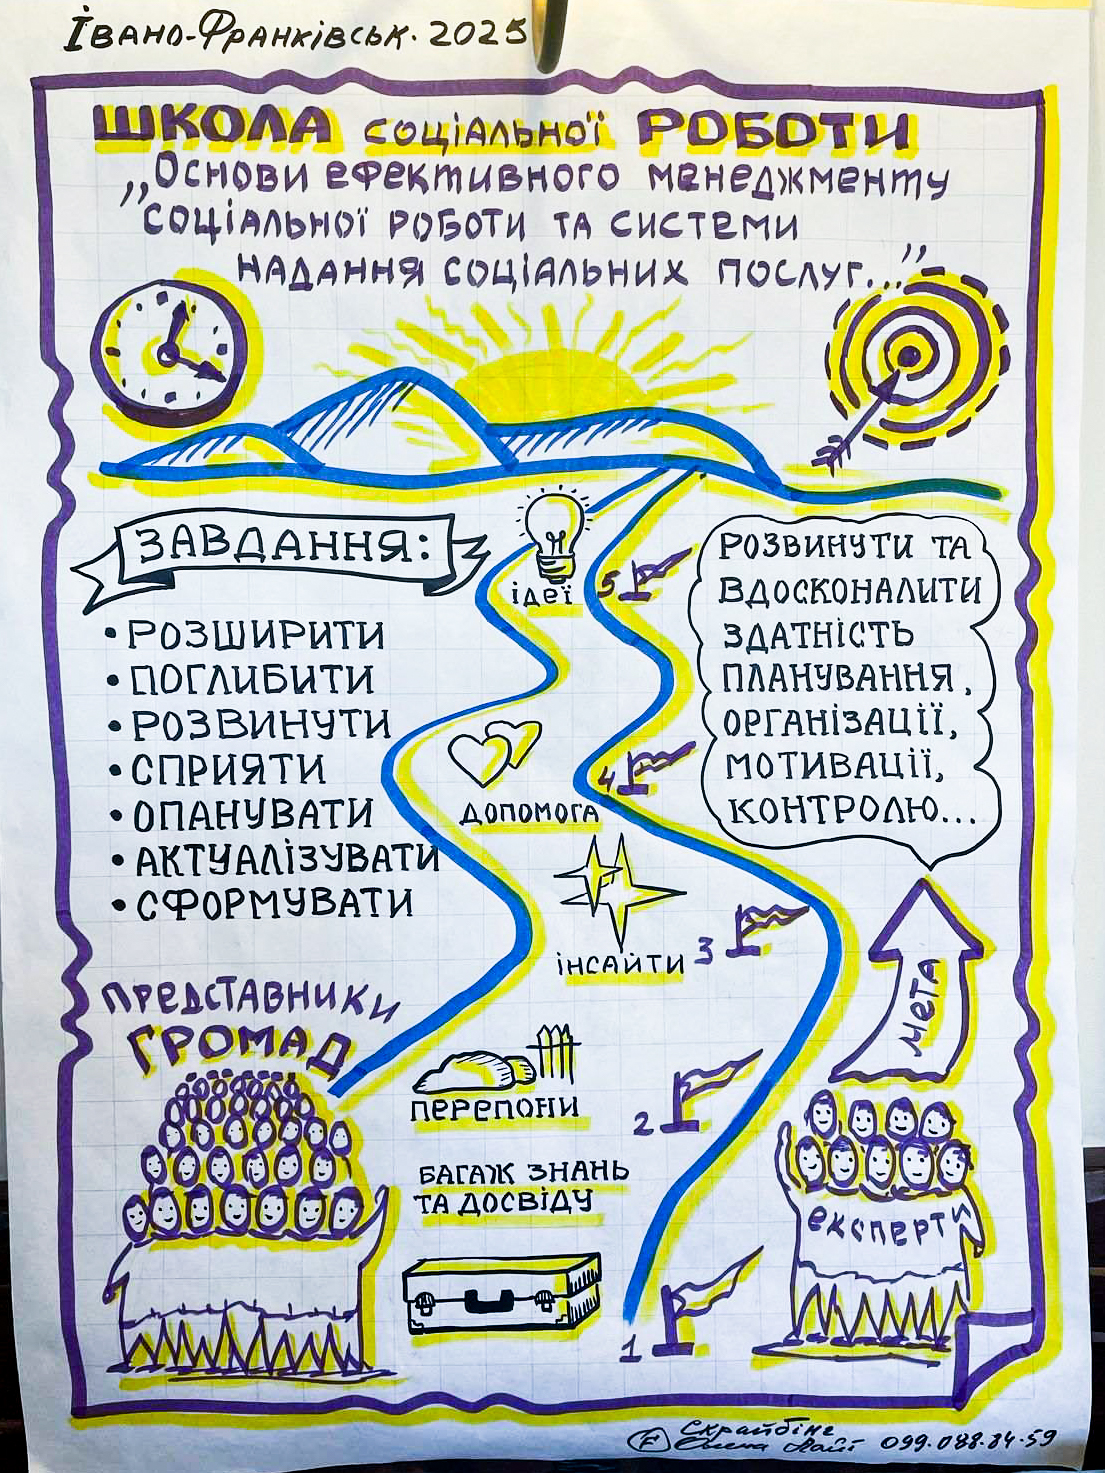 Івано-Франківськ. 2025
ШКОЛА СОЦІАЛЬНОЇ РОБОТИ
„Основи ефективного менеджменту
соціальної роботи та системи
надання соціальних послуг..."
ЗАВДАННЯ:
• РОЗШИРИТИ
• ПОГЛИБИТИ
• РОЗВИНУТИ
• СПРИЯТИ
• ОПАНУВАТИ
• АКТУАЛІЗУВАТИ
• СФОРМУВАТИ
ідеї
5
ДОПОМОГА
4
ІНСАЙТИ
3
ПЕРЕПОНИ
2
БАГАЖ ЗНАНЬ
ТА ДОСВІДУ
1
РОЗВИНУТИ ТА
ВДОСКОНАЛИТИ
ЗДАТНІСТЬ
ПЛАНУВАННЯ,
ОРГАНІЗАЦІЇ,
МОТИВАЦІЇ,
КОНТРОЛЮ...
МЕТА
ПРЕДСТАВНИКИ
ГРОМАД
експерти
Скрайбінг
Олена Лайт 099.088.84.59